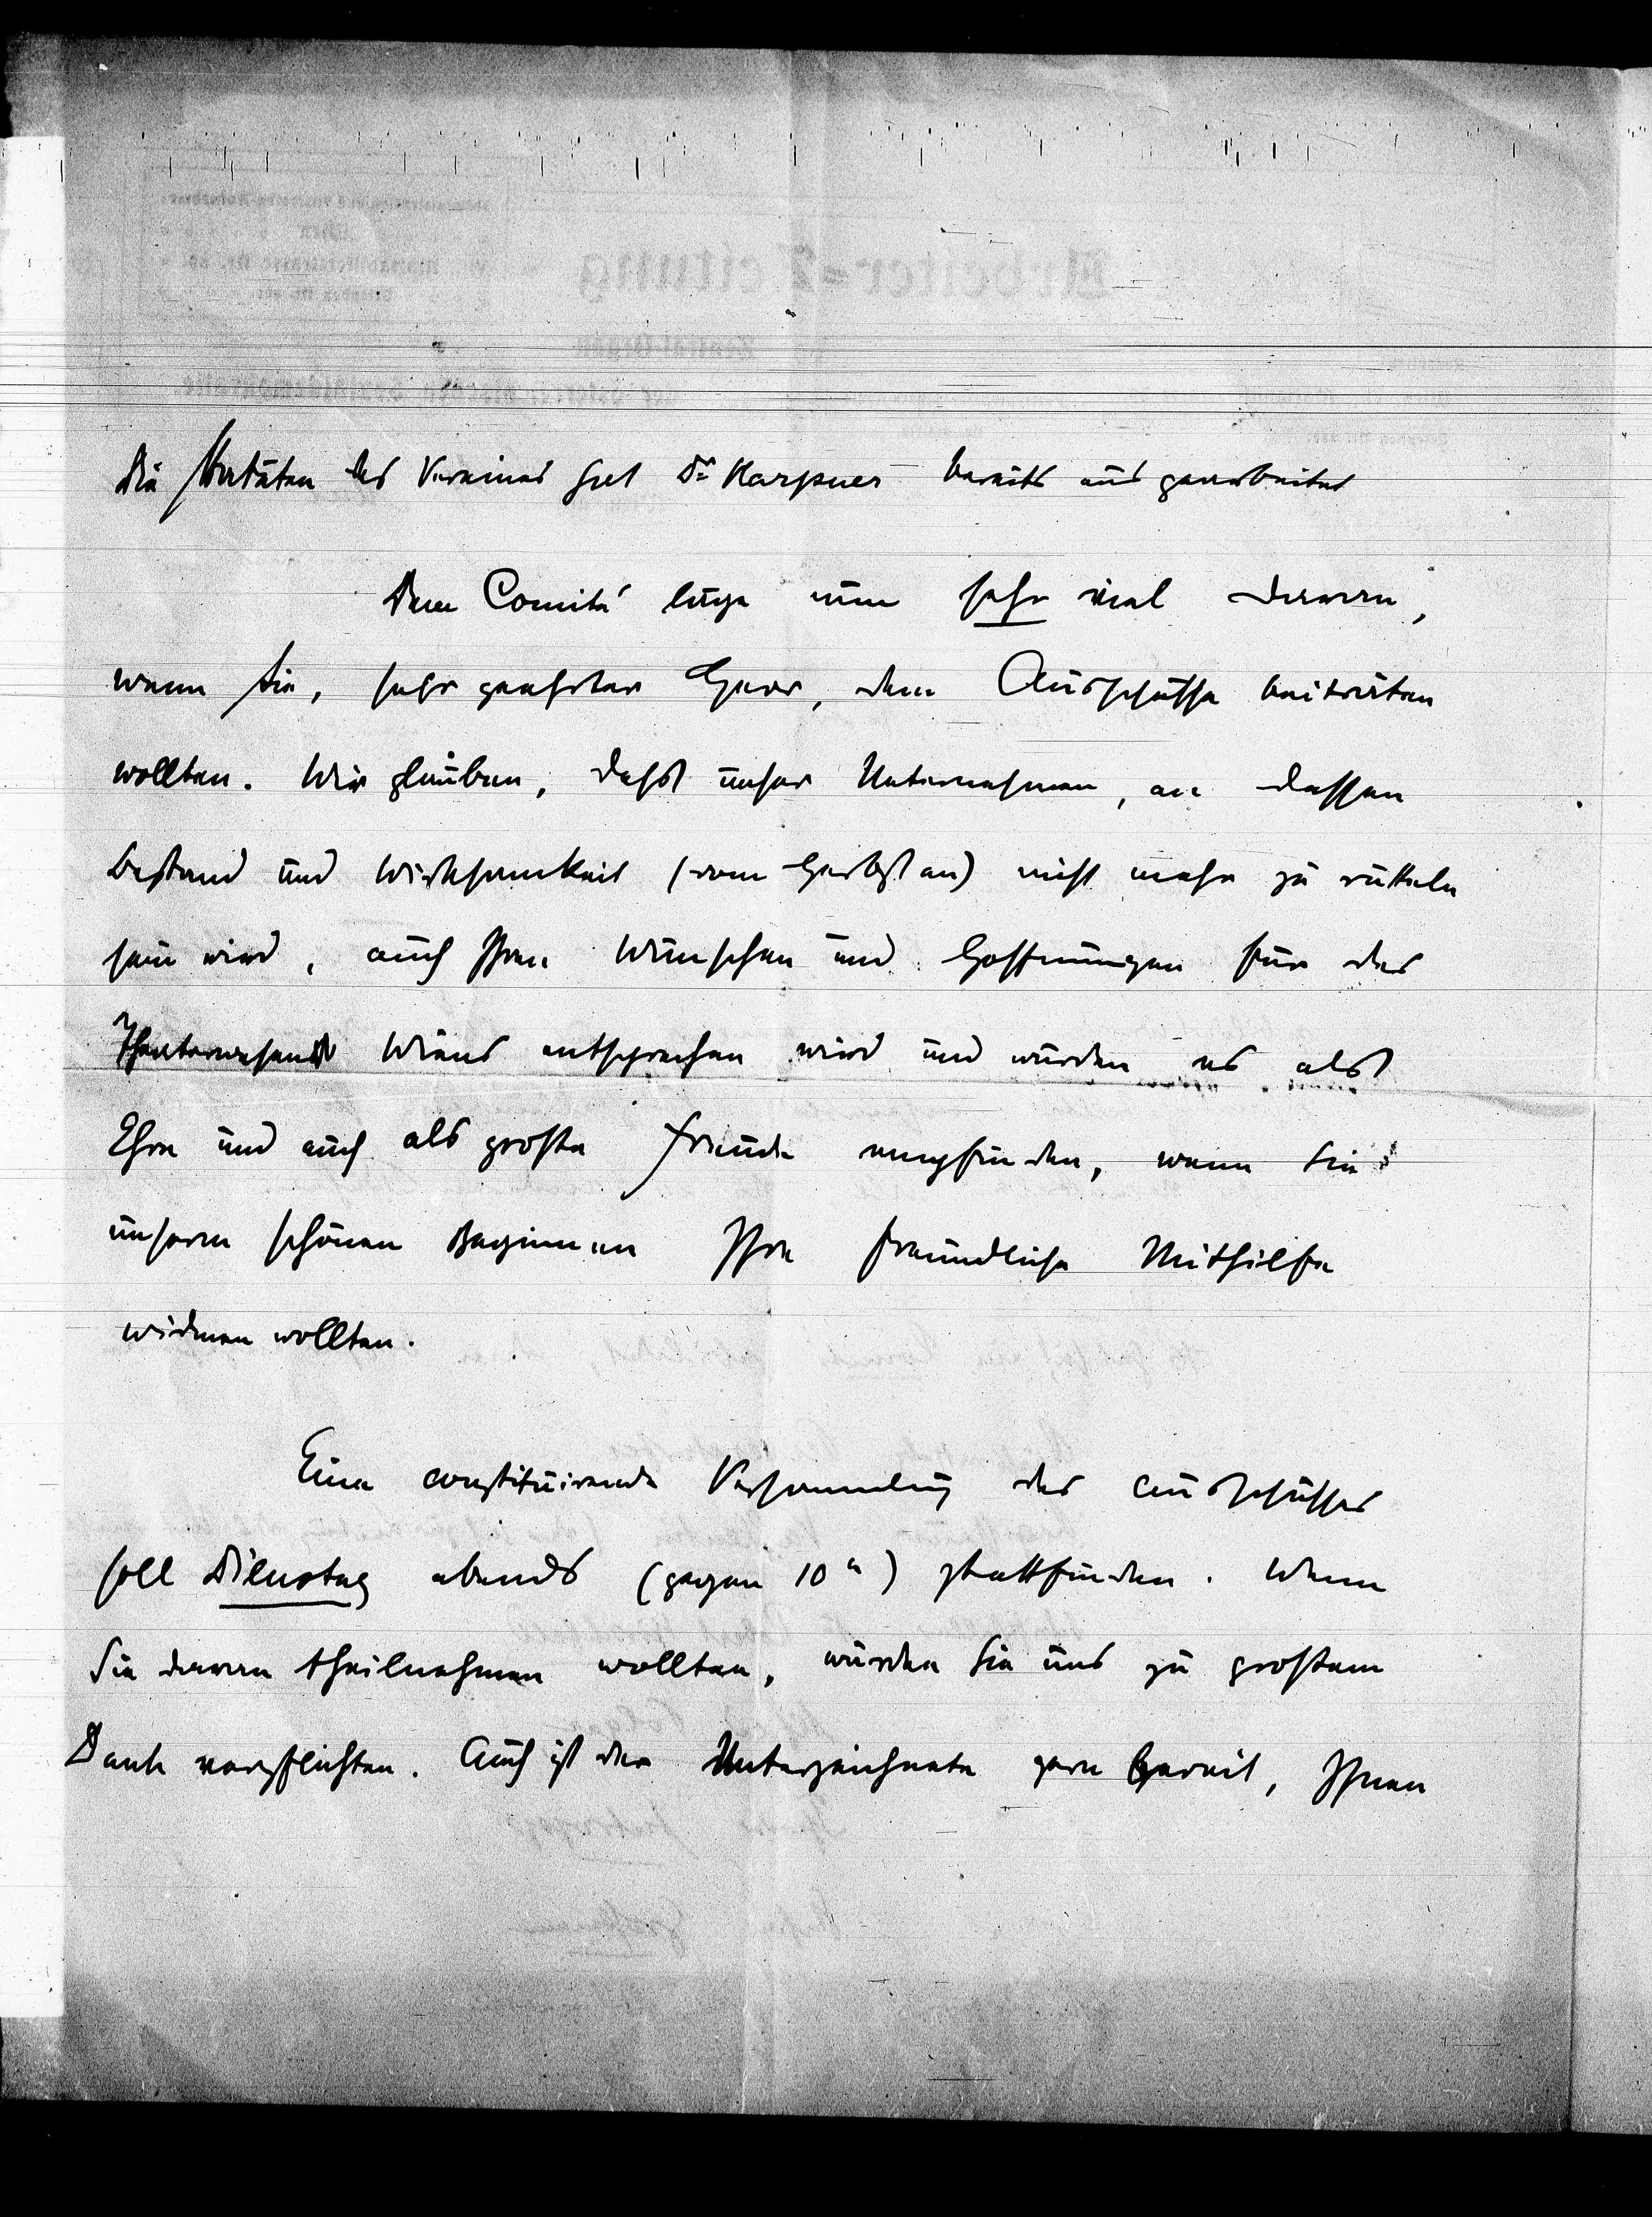 Die Statuten des Vereines hat Dr Karpner bereits ausgearbeitet
Dem Comité läge nun sehr viel daran,
wenn Sie, sehr geehrter Herr, dem Ausschusse beiträten
wollten. Wir glauben, dass unser Unternehmen, an dessen
Bestand und Wirksamkeit (vom Herbst an) nicht mehr zu rütteln
sein wird, auch Ihren Wünschen und Hoffnungen für das
Theaterwesen Wiens entsprechen wird und würden es als
Ehre und auch als große Freude empfinden, wenn Sie
unserm schönen Beginnen Ihre freundliche Mithilfe
widmen wollten.
Eine constituirende Versammlung des Ausschusses
soll Dienstag abends (gegen 10 h) stattfinden. Wenn
Sie daran theilnehmen wollten, würden Sie uns zu großem
Dank verpflichten. Auch ist der Unterzeichnete gern bereit, Ihnen